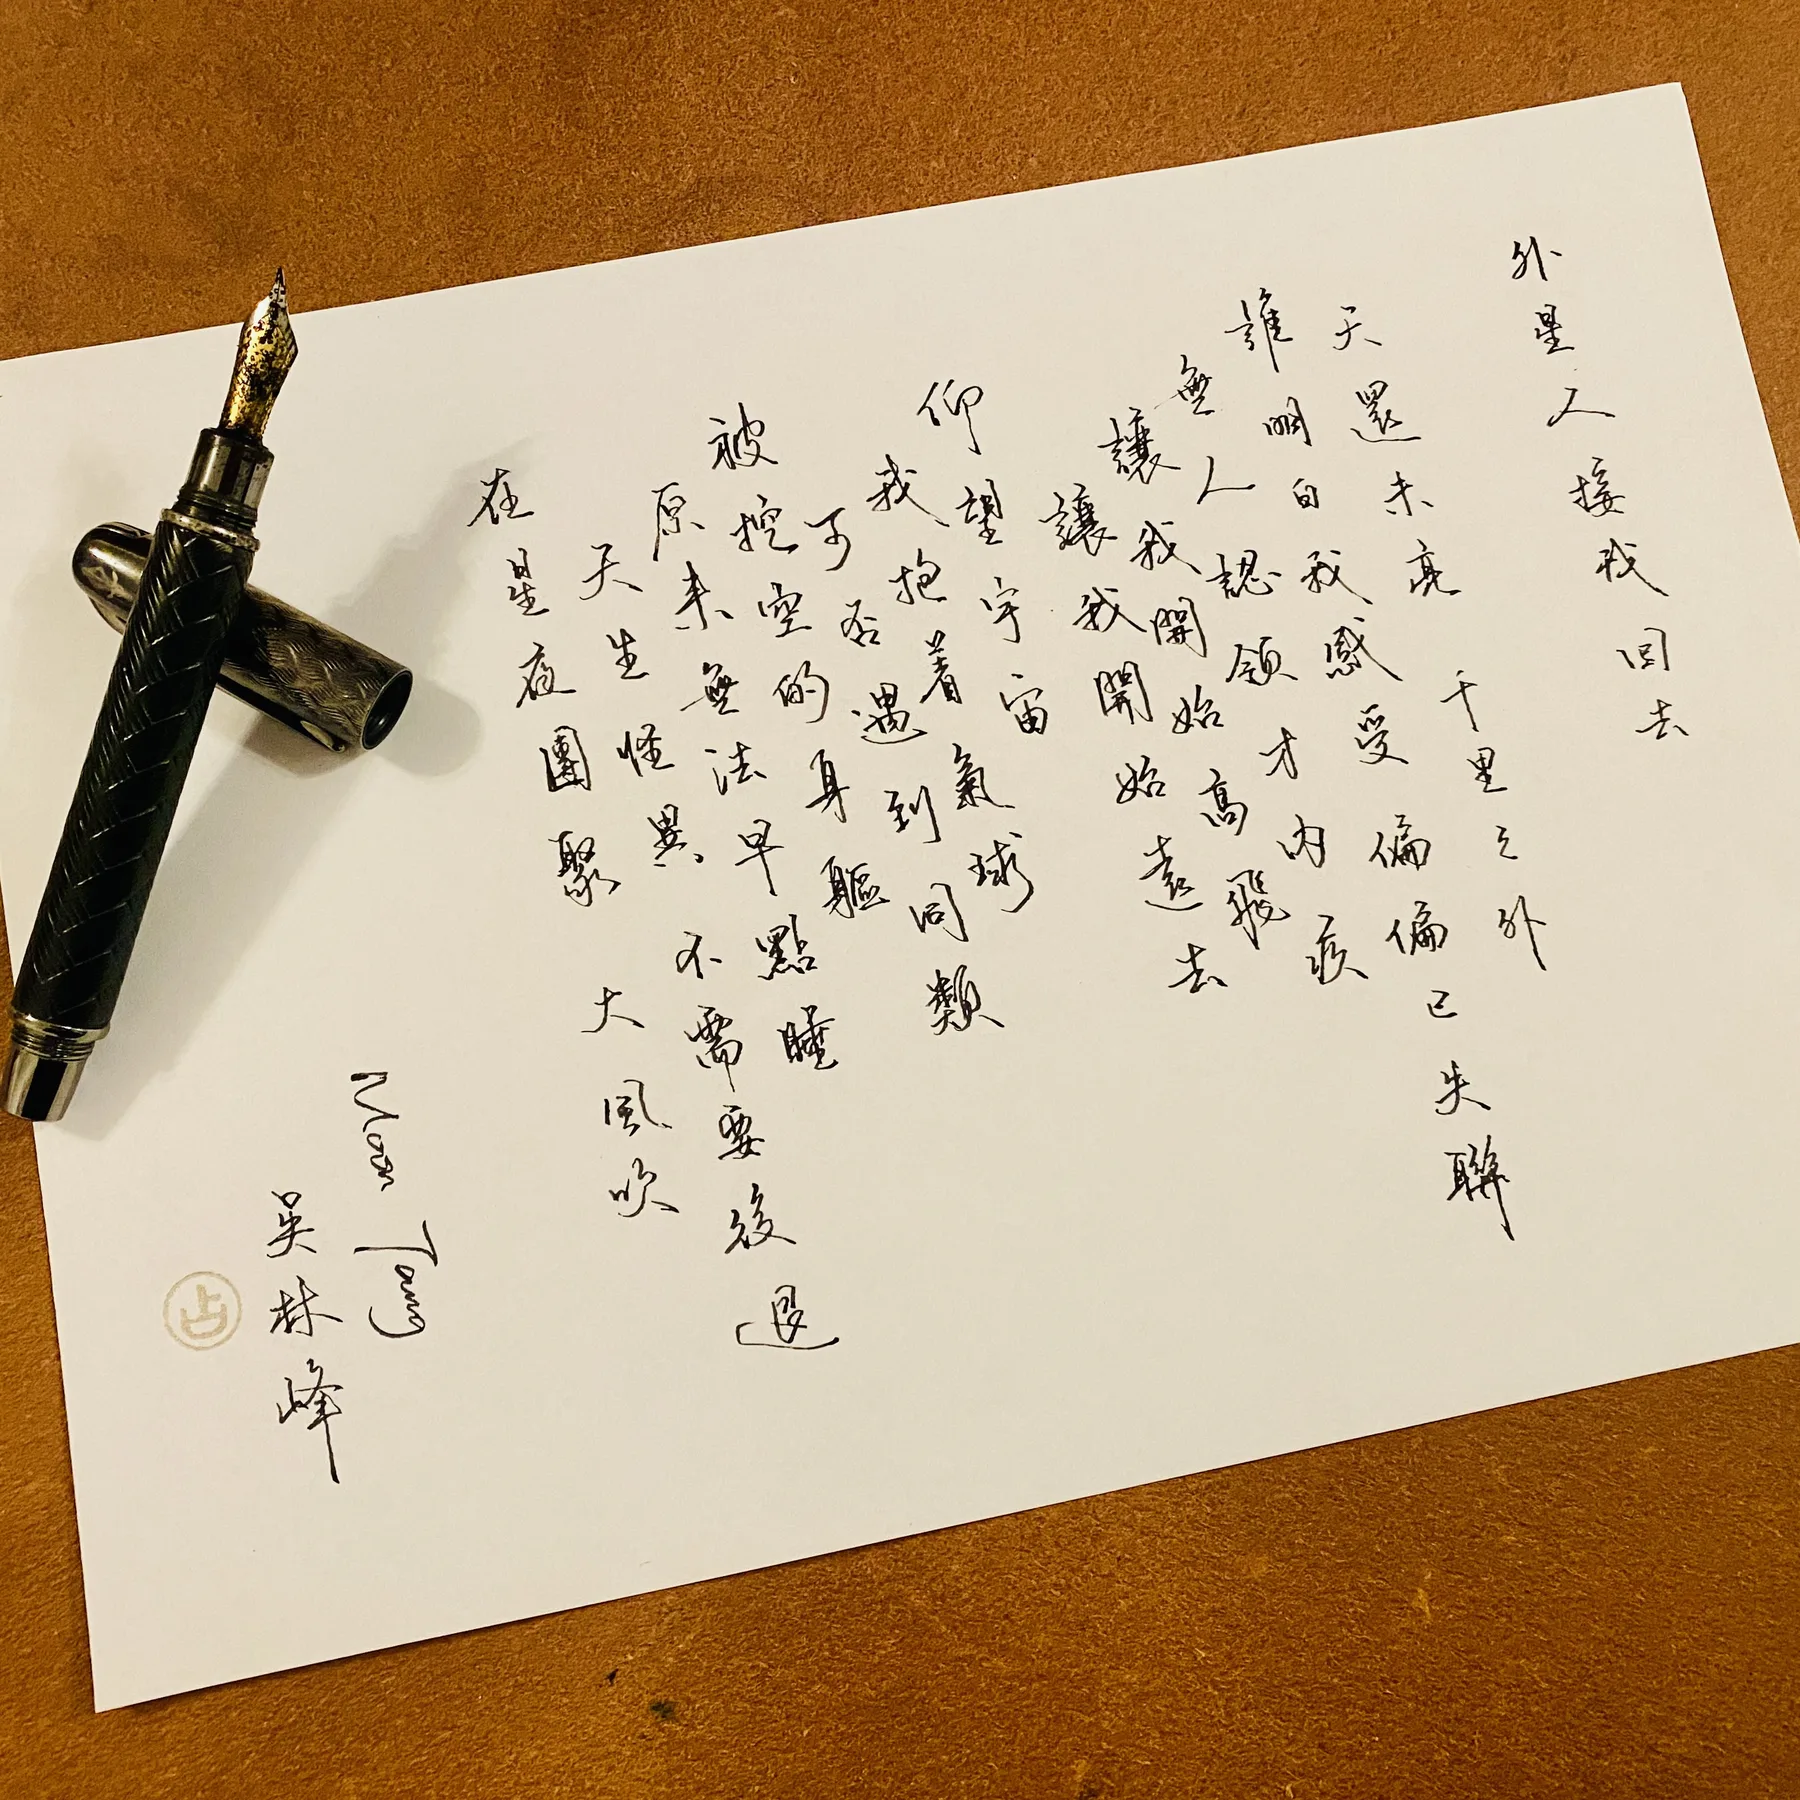 外星人接我回去
天還未亮 千里之外
誰明白我感受 偏偏已失聯
無人認領才內疚
讓我開始高飛
讓我開始遠去
仰望宇宙
我抱着氣球
可否遇到同類
被挖空的身軀
原來無法早點睡
天生怪異 不需要後退
在星夜團聚 大風吹
吳林峰
占